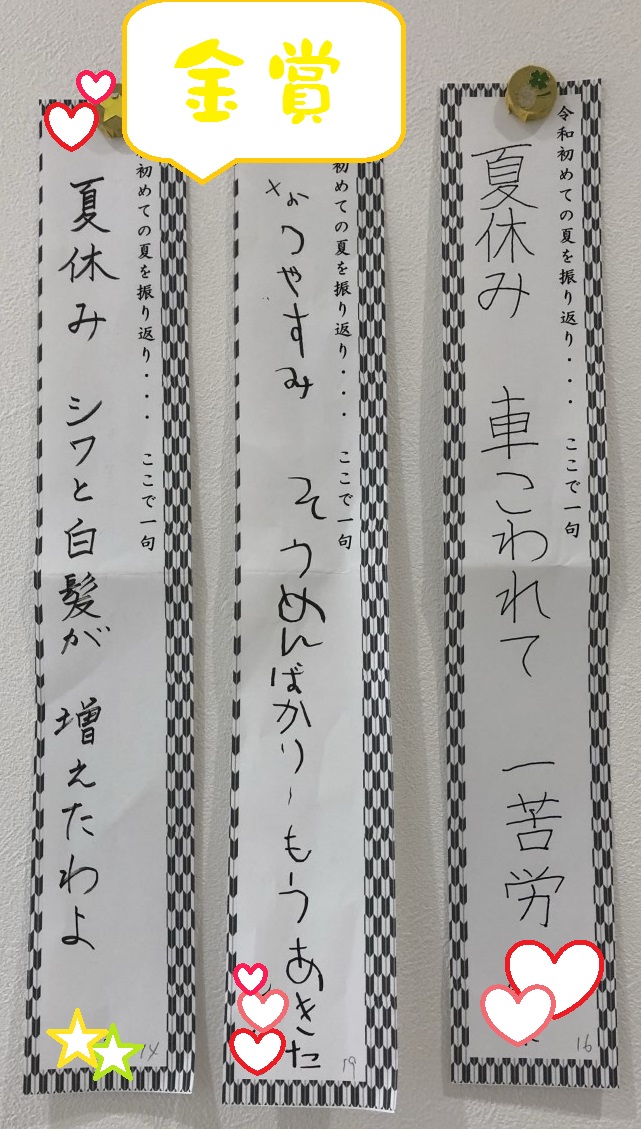 金賞
令和初めての夏を振り返り・・・ ここで一句
夏休み 車こわれて 一苦労
16
初めての夏を振り返り・・・ ここで一句
なつやすみ そうめんばかり もうあきた
19
初めての夏を振り返り・・・ ここで一句
夏休み シワと白髪が 増えたわよ
14